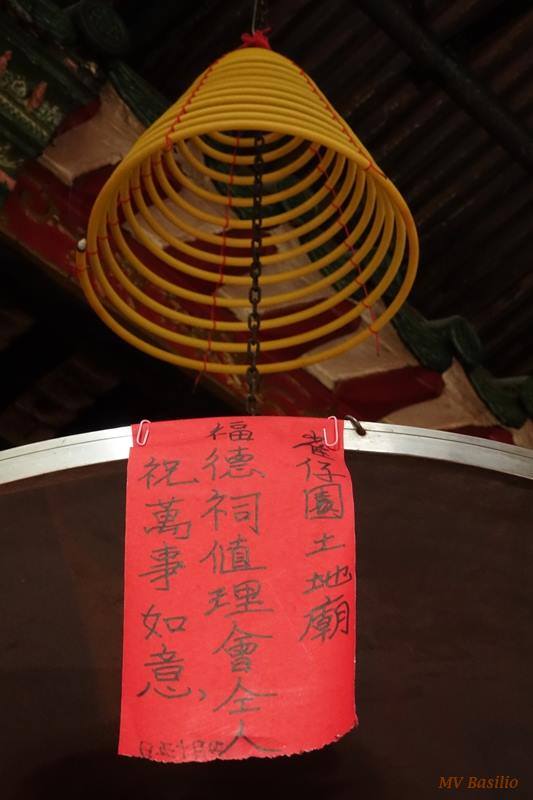 雀仔園土地廟
福德祠值理會仝人
祝萬事如意
MV Basilio